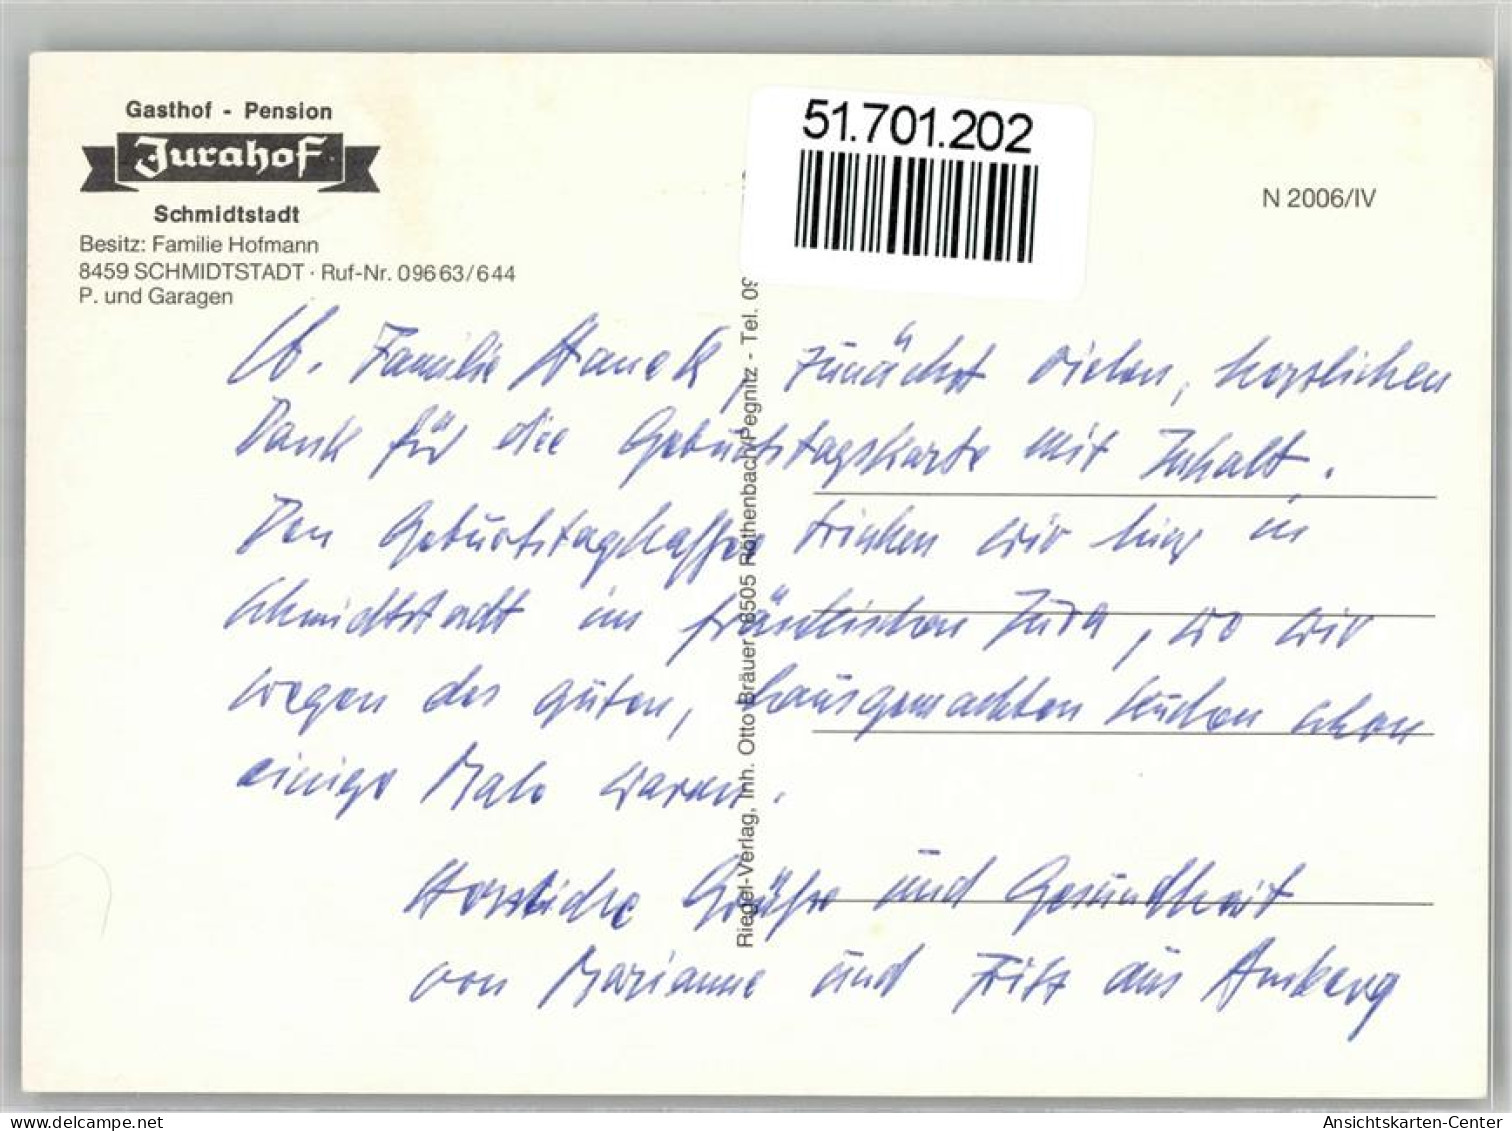 Gasthof - Pension
Jurahof
Schmidtstadt
Besitz: Familie Hofmann
8459 SCHMIDTSTADT · Ruf-Nr. 09663/644
P. und Garagen
51.701.202
N 2006/IV
Riegel-Verlag, Inh. Otto Bräuer, 8505 Röthenbach/Pegnitz - Tel. 09
Lb. Familie Hanek, zunächst vielen, herzlichen
Dank für die Geburtstagskarte mit Inhalt.
Den Geburtstagkaffee trinken wir hier in
Schmidtstadt im fränkischen Jura, wo wir
wegen des guten, hausgemachten Kuchen schon
einige Male waren.
Herzliche Grüße und Gesundheit
von Marianne und Fritz aus Amberg
oldthing.com
Ansichtskarten-Center